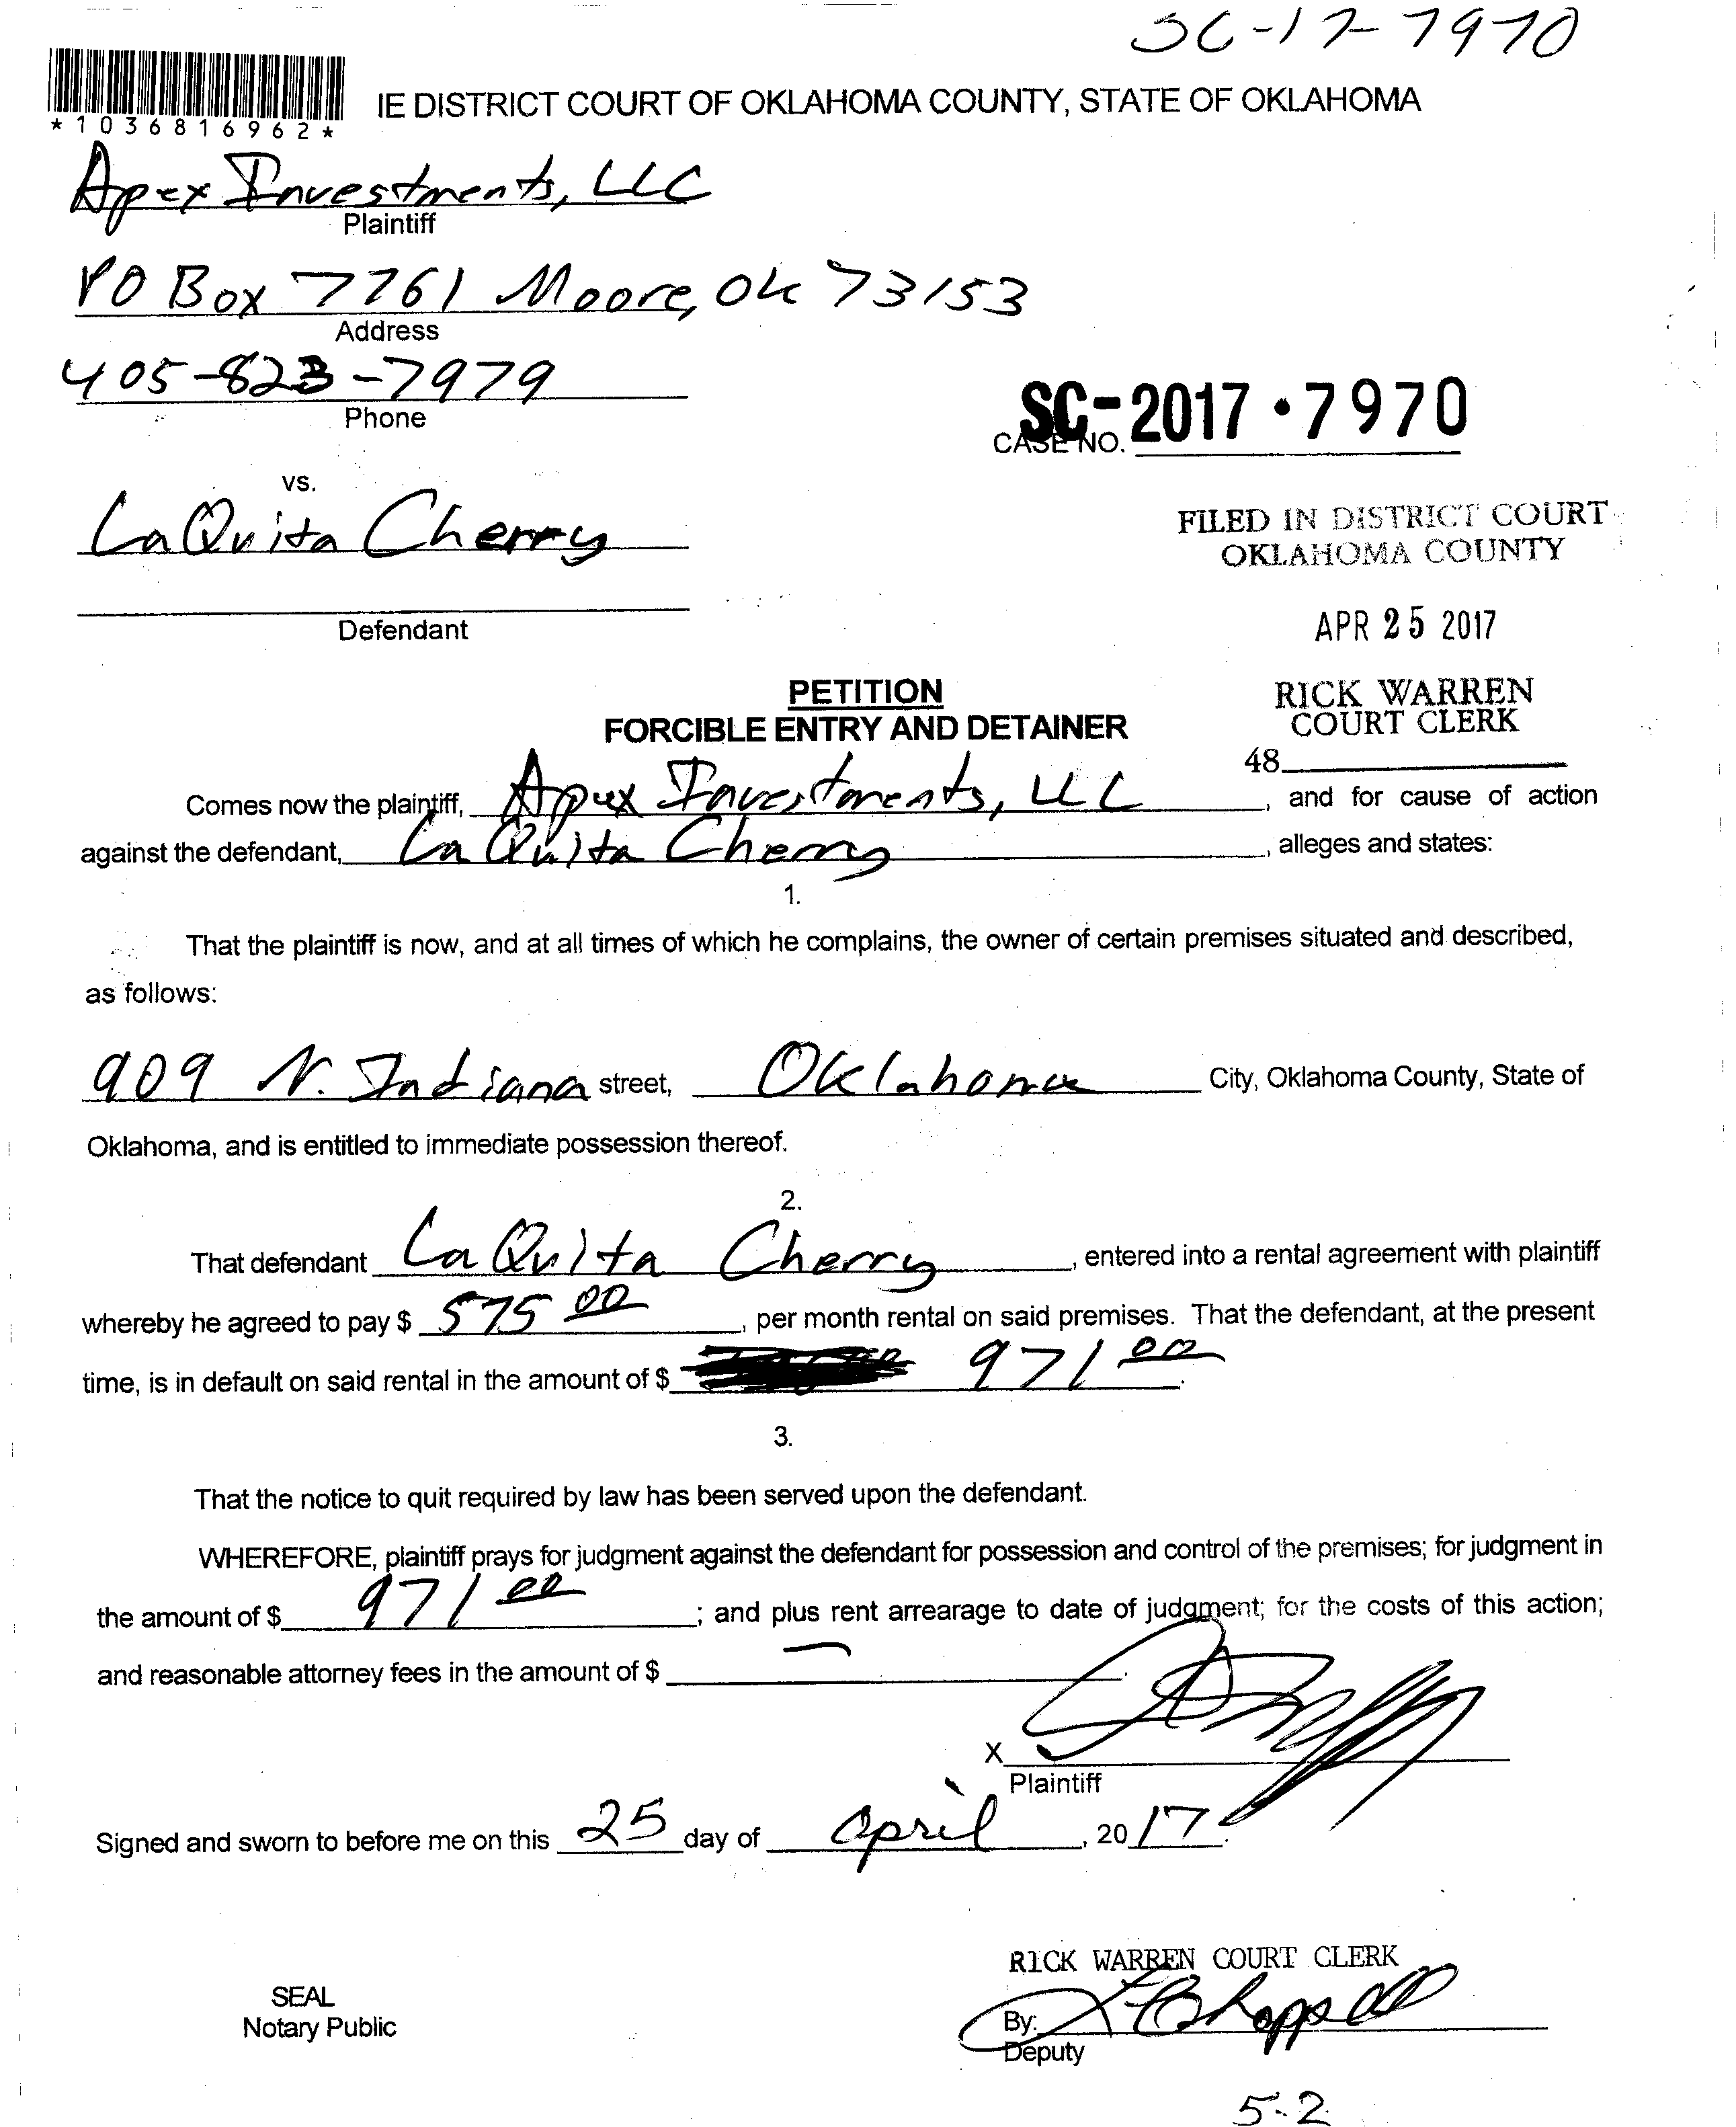 SC-17-7970
*1036816962*
IE DISTRICT COURT OF OKLAHOMA COUNTY, STATE OF OKLAHOMA
Apex Investments, LLC
Plaintiff
PO Box 7761 Moore, OK 73153
Address
405-823-7979
Phone
SC-2017-7970
CASE NO.
vs.
LaQuita Cherry
Defendant
FILED IN DISTRICT COURT
OKLAHOMA COUNTY
APR 25 2017
RICK WARREN
COURT CLERK
48
PETITION
FORCIBLE ENTRY AND DETAINER
Comes now the plaintiff, Apex Investments, LLC, and for cause of action
against the defendant, LaQuita Cherry, alleges and states:
1.
That the plaintiff is now, and at all times of which he complains, the owner of certain premises situated and described,
as follows:
909 N. Indiana street, Oklahoma City, Oklahoma County, State of
Oklahoma, and is entitled to immediate possession thereof.
2.
That defendant LaQuita Cherry, entered into a rental agreement with plaintiff
whereby he agreed to pay $ 575 00, per month rental on said premises. That the defendant, at the present
time, is in default on said rental in the amount of $ 971 00.
3.
That the notice to quit required by law has been served upon the defendant.
WHEREFORE, plaintiff prays for judgment against the defendant for possession and control of the premises; for judgment in
the amount of $ 971 00; and plus rent arrearage to date of judgment; for the costs of this action;
and reasonable attorney fees in the amount of $ —.
X
Plaintiff
Signed and sworn to before me on this 25 day of April, 2017.
RICK WARREN COURT CLERK
SEAL
Notary Public
By: Chappell
Deputy
5-2